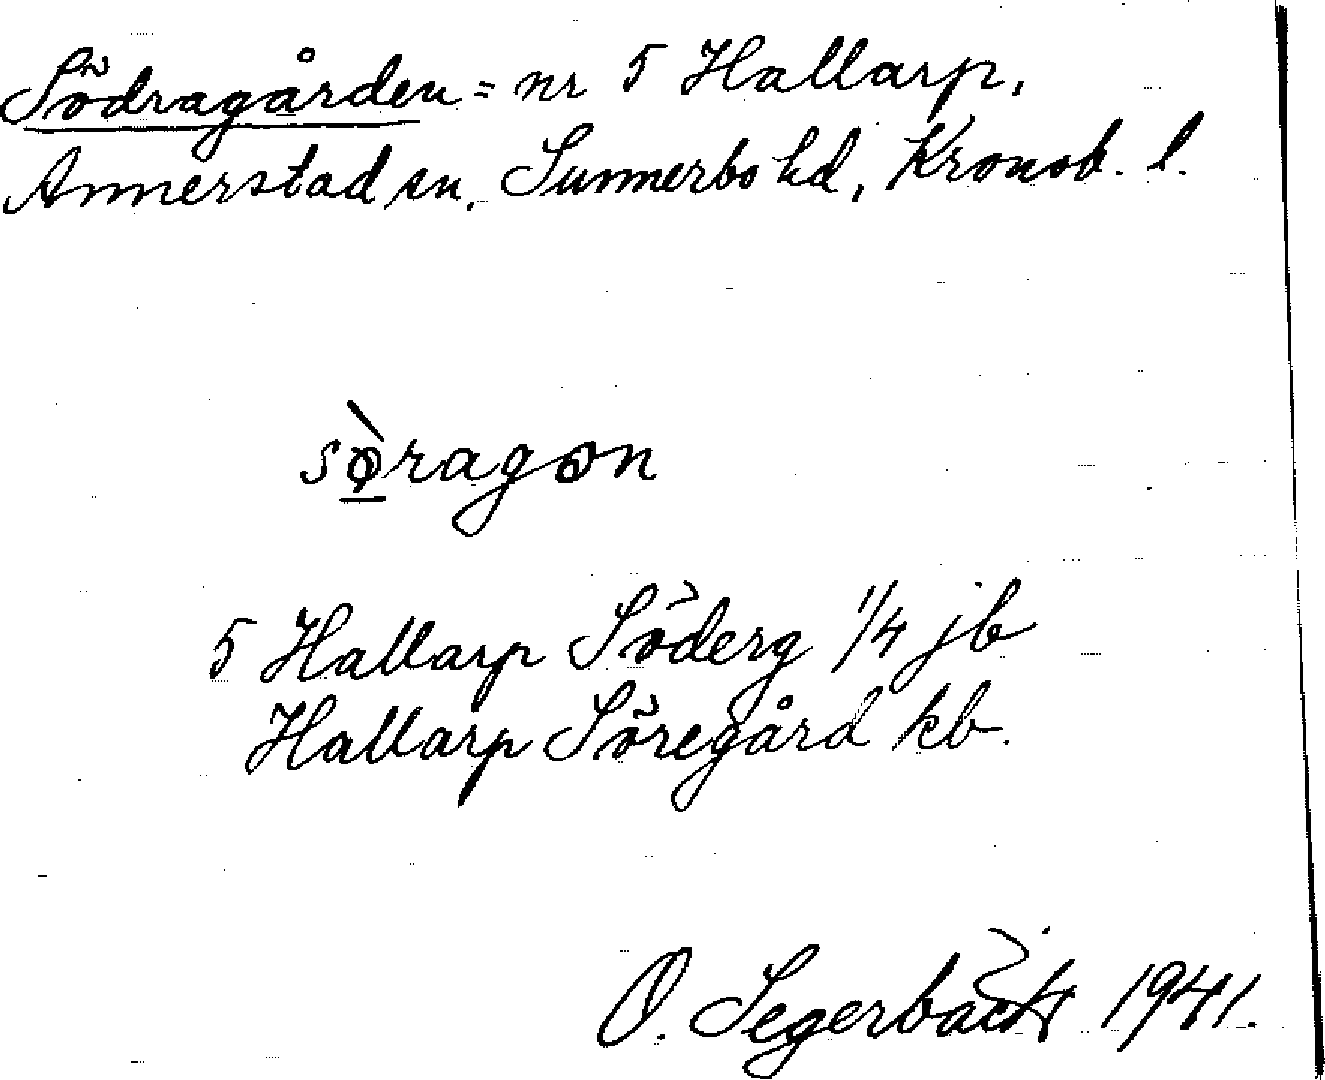 Södragården = nr 5 Hallarp,
Annerstad sn, Sunnerbo hd, Kronob. l.
sø̀ragɔn
5 Hallarp Söderg 1/4 jb
Hallarp Söregård kb.
O. Segerbäck 1941.